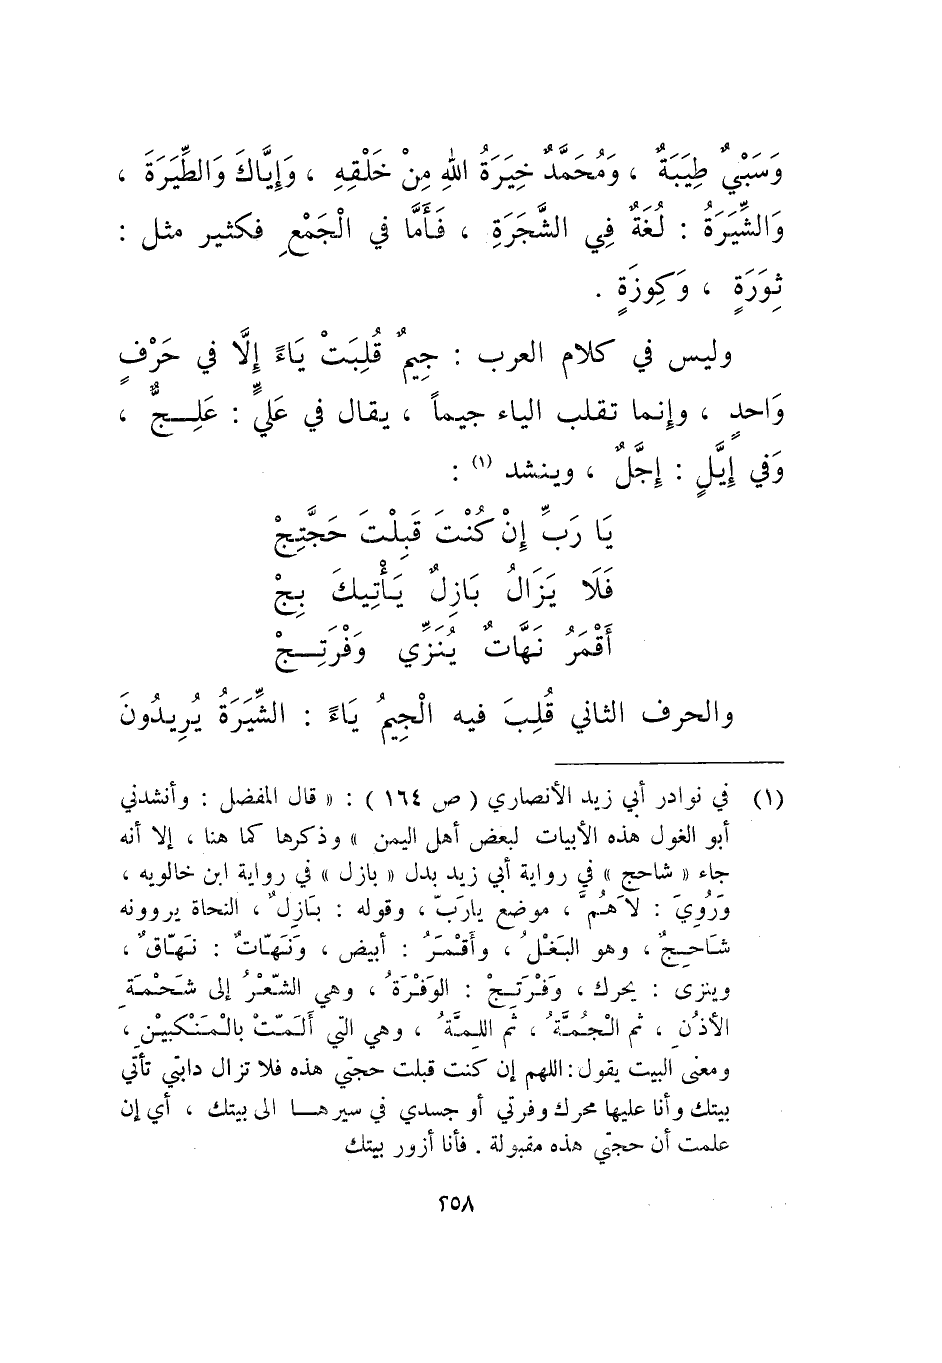 وَسَبْيٌ طِيَبَةٌ ، وَمُحَمَّدٌ خِيَرَةُ اللهِ مِنْ خَلْقِهِ ، وَإِيَّاكَ وَالطِّيَرَةَ ،
وَالشِّيَرَةُ : لُغَةٌ فِي الشَّجَرَةِ ، فَأَمَّا في الْجَمْعِ فكثير مثل :
ثِوَرَةٍ ، وَكِوزَةٍ .
وليس في كلام العرب : جِيمٌ قُلِبَتْ يَاءً إِلَّا في حَرْفٍ
وَاحدٍ ، وإنما تقلب الياء جيماً ، يقال في عَليٍّ : عَلِـجٌّ ،
وَفي إِيَّلٍ : إِجَّلٌ ، وينشد (١) :
يَا رَبِّ إِنْ كُنْتَ قَبِلْتَ حَجَّتِجْ
فَلَا يَزَالُ بَازِلٌ يَأْتِيكَ بِجْ
أَقْمَرُ نَهَّاتٌ يُنَزِّي وَفْرَتِـجْ
والحرف الثاني قُلِبَ فيه الْجِيمُ يَاءً : الشِّيَرَةُ يُرِيدُونَ
(١) في نوادر أبي زيد الأنصاري ( ص ١٦٤ ) : « قال المفضل : وأنشدني
أبو الغول هذه الأبيات لبعض أهل اليمن » وذكرها كما هنا ، إلا أنه
جاء « شاحج » في رواية أبي زيد بدل « بازل » في رواية ابن خالويه ،
وَرُوِيَ : لاَهُمَّ ، موضع يارَبّ ، وقوله : بَازِلٌ ، النحاة يروونه
شَاحِجٌ ، وهو البَغْلُ ، وأَقْمَرُ : أبيض ، وَنَهَّاتٌ : نَهَّاقٌ ،
وينزى : يحرك ، وَفْرَتِـجْ : الوَفْرَةُ ، وهي الشَّعْرُ إلى شَحْمَةِ
الأذُنِ ، ثم الْجُمَّةُ ، ثم اللِمَّةُ ، وهي التي أَلَمَّتْ بالْمَنْكَبيْنِ ،
ومعنى البيت يقول : اللهم إن كنت قبلت حجتي هذه فلا تزال دابتي تأتي
بيتك وأنا عليها محرك وفرتي أو جسدي في سيرهـا الى بيتك ، أي إن
علمت أن حجتي هذه مقبولة . فأنا أزور بيتك
٢٥٨